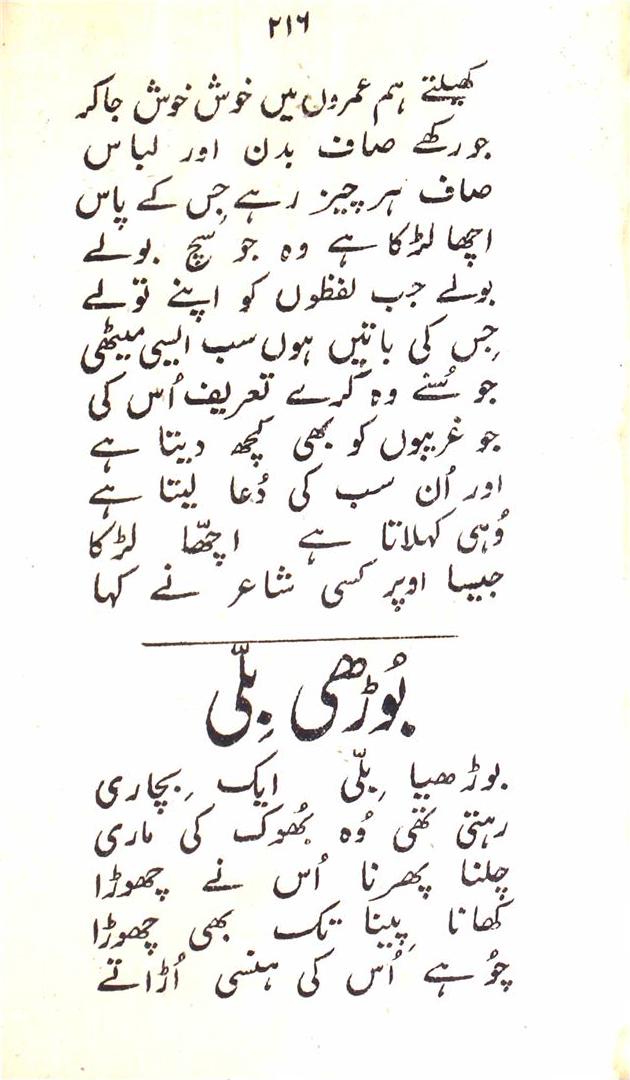 ۲۱۶
کھیلتے ہم عمروں میں خوش خوش جاکر
جو رکھے صاف بدن اور لباس
صاف ہر چیز رہے جِس کے پاس
اچھا لڑکا ہے وہ جو سچ بولے
بولے جب لفظوں کو اپنے تولے
جِس کی باتیں ہوں سب ایسی میٹھی
جو سُنے وہ کرے تعریف اُس کی
جو غریبوں کو بھی کچھ دیتا ہے
اور اُن سب کی دُعا لیتا ہے
وُہی کہلاتا ہے اچھّا لڑکا
جیسا اوپر کسی شاعر نے کہا
بُوڑھی بِلّی
بوڑھیا بِلّی ایک بِچاری
رہتی تھی وُہ بھُوک کی ماری
چلنا پھرنا اُس نے چھوڑا
کھانا پِینا تک بھی چھوڑا
چُوہے اُس کی ہنسی اُڑاتے